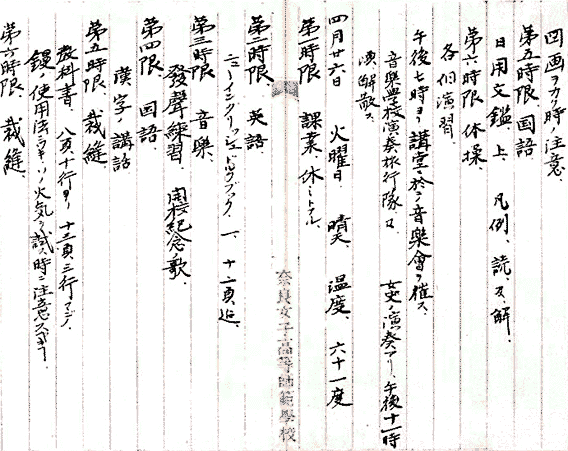 図画ヲカク時ノ注意.
第五時限、国語
日用文鑑、上、凡例、読、及、解、
第六時限、体操、
各個演習.
午後七時ヨリ講堂ニ於テ音樂會ヲ催ス、
音樂學校演奏旅行隊、及 女史ノ演奏アリ、午後十一時
頃解散ス、
四月廿六日 火曜日 晴天 温度、六十一度
第一時限、課業、休ミトナル、
第二時限、英語、
一、十二頁迄、
第三時限、音樂、
發聲練習、開校紀念ノ歌、
第四限、国語、
漢字ノ講話
第五時限、裁縫
教科書、八頁十行ヨリ十三頁三行マデ、
使用法 火気ヲ試ス時ニ注意スベキ
第六時限、裁縫、
奈良女子高等師範學校